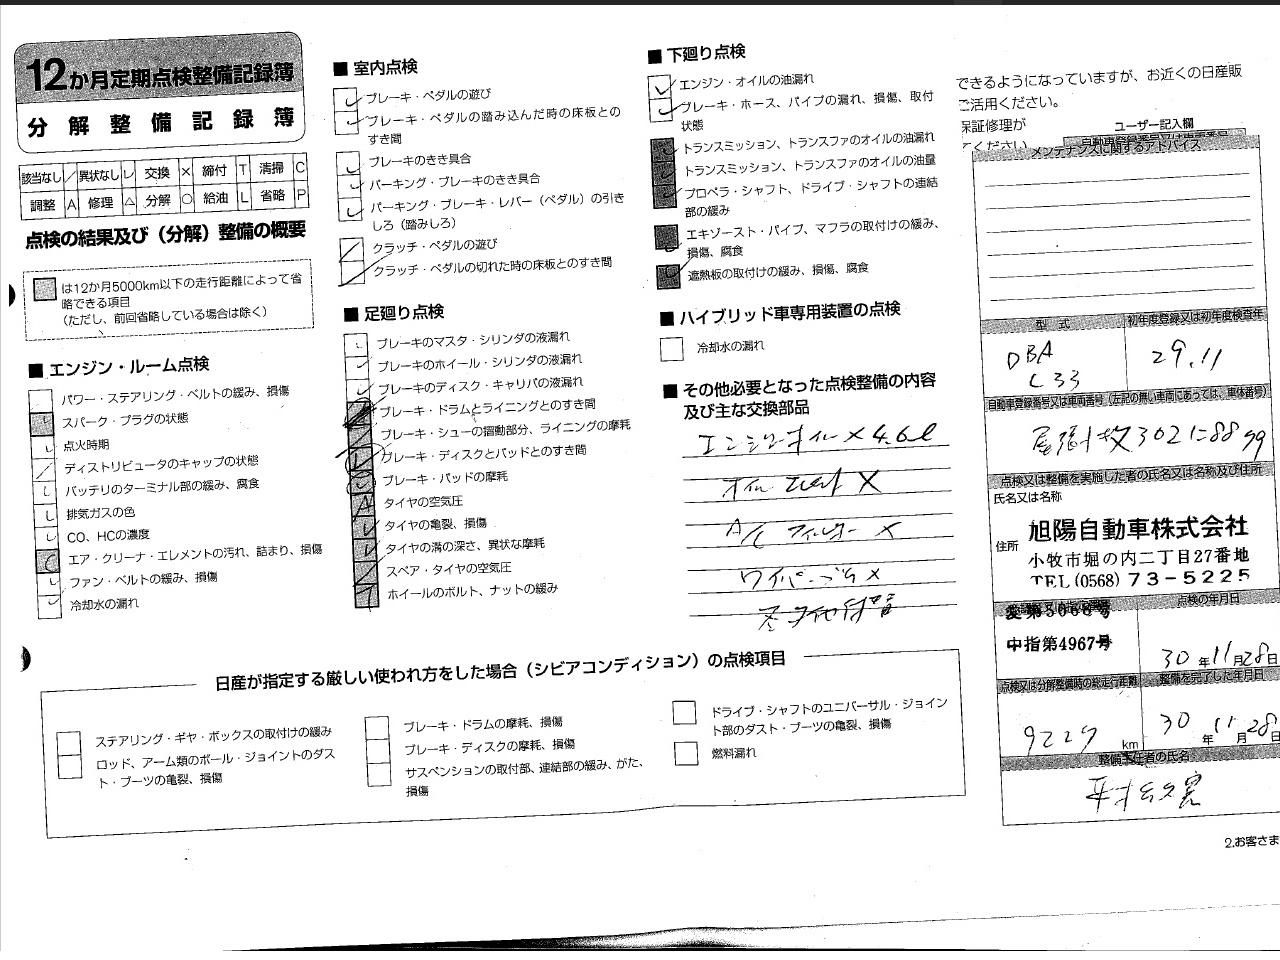 12か月定期点検整備記録簿
分解整備記録簿
該当なし / 異状なし レ 交換 × 締付 T 清掃 C
調整 A 修理 △ 分解 ○ 給油 L 省略 P
点検の結果及び（分解）整備の概要
は12か月5000km以下の走行距離によって省
略できる項目
（ただし、前回省略している場合は除く）
■ エンジン・ルーム点検
パワー・ステアリング・ベルトの緩み、損傷
スパーク・プラグの状態
点火時期
ディストリビュータのキャップの状態
バッテリのターミナル部の緩み、腐食
排気ガスの色
CO、HCの濃度
エア・クリーナ・エレメントの汚れ、詰まり、損傷
ファン・ベルトの緩み、損傷
冷却水の漏れ
■ 室内点検
ブレーキ・ペダルの遊び
ブレーキ・ペダルの踏み込んだ時の床板との
すき間
ブレーキのきき具合
パーキング・ブレーキのきき具合
パーキング・ブレーキ・レバー（ペダル）の引き
しろ（踏みしろ）
クラッチ・ペダルの遊び
クラッチ・ペダルの切れた時の床板とのすき間
■ 足廻り点検
ブレーキのマスタ・シリンダの液漏れ
ブレーキのホイール・シリンダの液漏れ
ブレーキのディスク・キャリパの液漏れ
ブレーキ・ドラムとライニングとのすき間
ブレーキ・シューの摺動部分、ライニングの摩耗
ブレーキ・ディスクとパッドとのすき間
ブレーキ・パッドの摩耗
タイヤの空気圧
タイヤの亀裂、損傷
タイヤの溝の深さ、異状な摩耗
スペア・タイヤの空気圧
ホイールのボルト、ナットの緩み
■ 下廻り点検
エンジン・オイルの油漏れ
ブレーキ・ホース、パイプの漏れ、損傷、取付
状態
トランスミッション、トランスファのオイルの油漏れ
トランスミッション、トランスファのオイルの油量
プロペラ・シャフト、ドライブ・シャフトの連結
部の緩み
エキゾースト・パイプ、マフラの取付けの緩み、
損傷、腐食
遮熱板の取付けの緩み、損傷、腐食
■ ハイブリッド車専用装置の点検
冷却水の漏れ
■ その他必要となった点検整備の内容
及び主な交換部品
エンジンオイル × 4.6ℓ
A/C フィルター ×
できるようになっていますが、お近くの日産販
ご活用ください。
保証修理が
てください
ユーザー記入欄
メンテナンスに関するアドバイス
型 式 初年度登録又は初年度検査年
DBA
C33
29.11
自動車登録番号又は車両番号（左記の無い車両にあっては、車体番号）
尾張小牧302に8899
点検又は整備を実施した者の氏名又は名称及び住所
氏名又は名称
旭陽自動車株式会社
住所
小牧市堀の内二丁目27番地
TEL(0568)73-5225
愛第5068号
中指第4967号
点検の年月日
30年11月28日
点検又は分解整備時の総走行距離 整備を完了した年月日
9227 km
30年11月28日
整備主任者の氏名
日産が指定する厳しい使われ方をした場合（シビアコンディション）の点検項目
ステアリング・ギヤ・ボックスの取付けの緩み
ロッド、アーム類のボール・ジョイントのダス
ト・ブーツの亀裂、損傷
ブレーキ・ドラムの摩耗、損傷
ブレーキ・ディスクの摩耗、損傷
サスペンションの取付部、連結部の緩み、がた、
損傷
ドライブ・シャフトのユニバーサル・ジョイン
ト部のダスト・ブーツの亀裂、損傷
燃料漏れ
2.お客さま